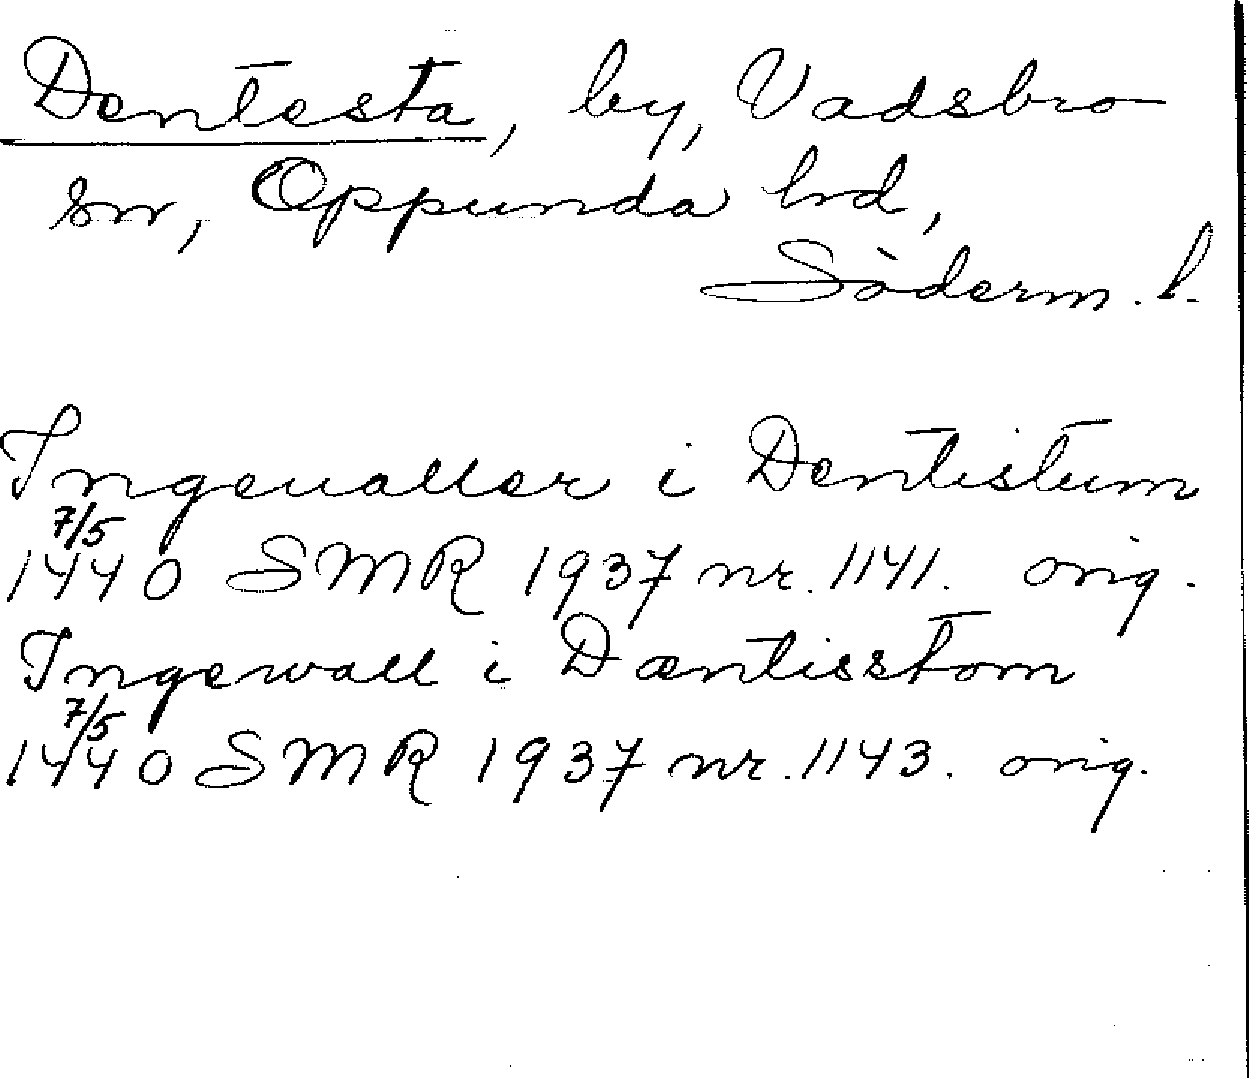 Dentesta, by, Vadsbro
sn, Oppunda hd,
Söderm. l.
Ingeualler i Dentistum
7/5
1440 SMR 1937 nr. 1141. orig.
Ingewall i Dæntisstom
7/5
1440 SMR 1937 nr. 1143. orig.